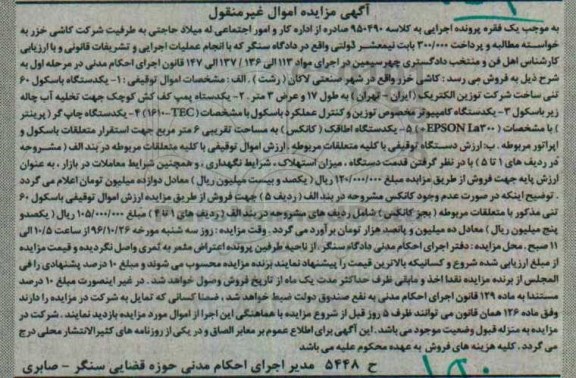 آگهی مزایده اموال غیرمنقول
به موجب یک فقره پرونده اجرایی به کلاسه ۹۵۰۴۹۰ صادره از اداره کار و امور اجتماعی له میلاد حاجتی به طرفیت شرکت کاشی خزر به
خواسته مطالبه و پرداخت ۳۰۰/۰۰۰ بابت نیمعشر دولتی واقع در دادگاه سنگر که با انجام عملیات اجرایی و تشریفات قانونی و با ارزیابی
کارشناس اهل فن و منتخب دادگستری چهرسیمین در اجرای مواد ۱۱۳ الی ۱۳۶ / ۱۳۷ الی ۱۴۷ قانون اجرای احکام مدنی در مرحله اول به
شرح ذیل به فروش می رسد : کاشی خزر واقع در شهر صنعتی لاکان ( رشت ) . الف : مشخصات اموال توقیفی : ۱- یکدستگاه باسکول ۶۰
تنی ساخت شرکت توزین الکتریک ( ایران - تهران ) به طول ۱۷ و عرض ۳ متر . ۲- یکدستاه پمپ کف کش کوچک جهت تخلیه آب چاله
زیر باسکول ۳- یکدستگاه کامپیوتر مخصوص توزین و کنترل عملکرد باسکول با مشخصات (TEC-۱۶۱۰) ۴- یکدستگاه چاپ گر ( پرینتر
) با مشخصات ( EPSON La۳۰۰+) ۵- یکدستگاه اطاقک ( کانکس ) به مساحت تقریبی ۶ متر مربع جهت استقرار متعلقات باسکول و
اپراتور مربوطه . ب: ارزش دستگاه توقیفی با کلیه متعلقات مربوطه . ارزش اموال توقیفی با کلیه متعلقات مربوطه در بند الف ( مشروحه
در ردیف های ۱ تا ۵ ) با در نظر گرفتن قدمت دستگاه . میزان استهلاک . شرایط نگهداری . و همچنین شرایط معاملات در بازار ، به عنوان
ارزش پایه جهت فروش از طریق مزایده مبلغ ۱۲۰/۰۰۰/۰۰۰ ریال ( یکصد و بیست میلیون ریال ) معادل دوازده میلیون تومان اعلام می گردد
. توضیح اینکه در صورت عدم وجود کانکس مشروحه در بند الف ( ردیف ۵ ) جهت فروش از طریق مزایده ارزش اموال توقیفی باسکول ۶۰
تنی مذکور با متعلقات مربوطه ( بجز کانکس ) شامل ردیف های مشروحه در بند الف ( ردیف های ۱ تا ۴ ) مبلغ ۱۰۵/۰۰۰/۰۰۰ ریال ( یکصدو
پنج میلیون ریال ) معادل ده میلیون و پانصد هزار تومان برآورد می گردد . وقت مزایده : روز سه شنبه مورخه ۹۶/۱۰/۲۶ از ساعت ۱۰/۵ الی
۱۱ صبح . محل مزایده : دفتر اجرای احکام مدنی دادگاه سنگر . از ناحیه طرفین پرونده اعتراض مثمر به ثمری واصل نگردیده و قیمت مزایده
از مبلغ ارزیابی شده شروع و کسانیکه بالاترین قیمت را پیشنهاد نمایند برنده مزایده محسوب می شوند و مبلغ ۱۰ درصد پشنهادی را فی
المجلس از برنده مزایده نقدا اخذ و مابقی ظرف حداکثر مدت یک ماه از تاریخ فروش وصول خواهد شد . در غیر اینصورت مبلغ ۱۰ درصد
مستندا به ماده ۱۲۹ قانون اجرای احکام مدنی به نفع صندوق دولت ضبط خواهد شد . ضمنا کسانی که تمایل به شرکت در مزایده را دارند
وفق ماده ۱۲۶ همان قانون می توانند ظرف ۵ روز قبل از شروع مزایده با هماهنگی این اجرا از اموال مورد مزایده بازدید نمایند . شرکت در
مزایده به منزله قبول وضعیت موجود می باشد . این آگهی برای اطلاع عموم بر معابر الصاق و در یکی از روزنامه های کثیرالانتشار محلی درج
می گردد . کلیه هزینه های فروش به عهده محکوم علیه می باشد
ح ۵۴۴۸ مدیر اجرای احکام مدنی حوزه قضایی سنگر - صابری